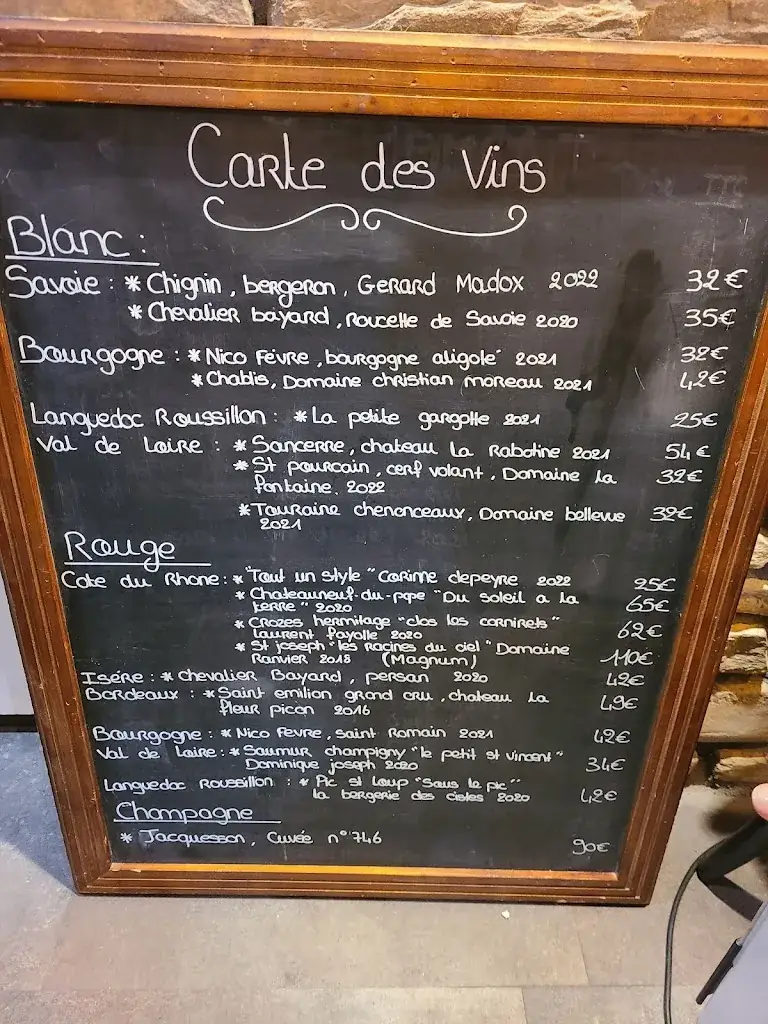 Carte des Vins
Blanc :
Savoie : * Chignin, bergeron, Gerard Madox 2022 32€
* Chevalier bayard, Roucette de Savoie 2020 35€
Bourgogne : * Nico Fèvre, bourgogne aligoté 2021 32€
* Chablis, Domaine christian moreau 2021 42€
Languedoc Roussillon : * La petite gargotte 2021 25€
Val de Loire : * Sancerre, chateau La Rabotine 2021 54€
* St pourcain, cerf volant, Domaine la 32€
fontaine. 2022
* Touraine chenonceaux, Domaine bellevue 32€
2021
Rouge
Cote du Rhone : * "Tout un style" Corinne depeyre 2022 25€
* Chateauneuf-du-pape "Du soleil a la 65€
terre" 2020
* Crozes hermitage "clos les cornirets" 62€
Laurent fayolle 2020
* St joseph "les racines du ciel" Domaine
Ranvier 2018 (Magnum) 110€
Isére : * Chevalier Bayard, persan 2020 42€
Bordeaux : * Saint emilion grand cru, chateau la 49€
fleur picon 2016
Bourgogne : * Nico Fevre, saint Romain 2021 42€
Val de Loire : * Saumur champigny "le petit st vincent" 34€
Dominique joseph 2020
Languedoc Roussillon : * Pic st loup "Sous le pic"
la bergerie des cistes 2020 42€
Champagne
* Jacquesson, Cuvée n°746 90€